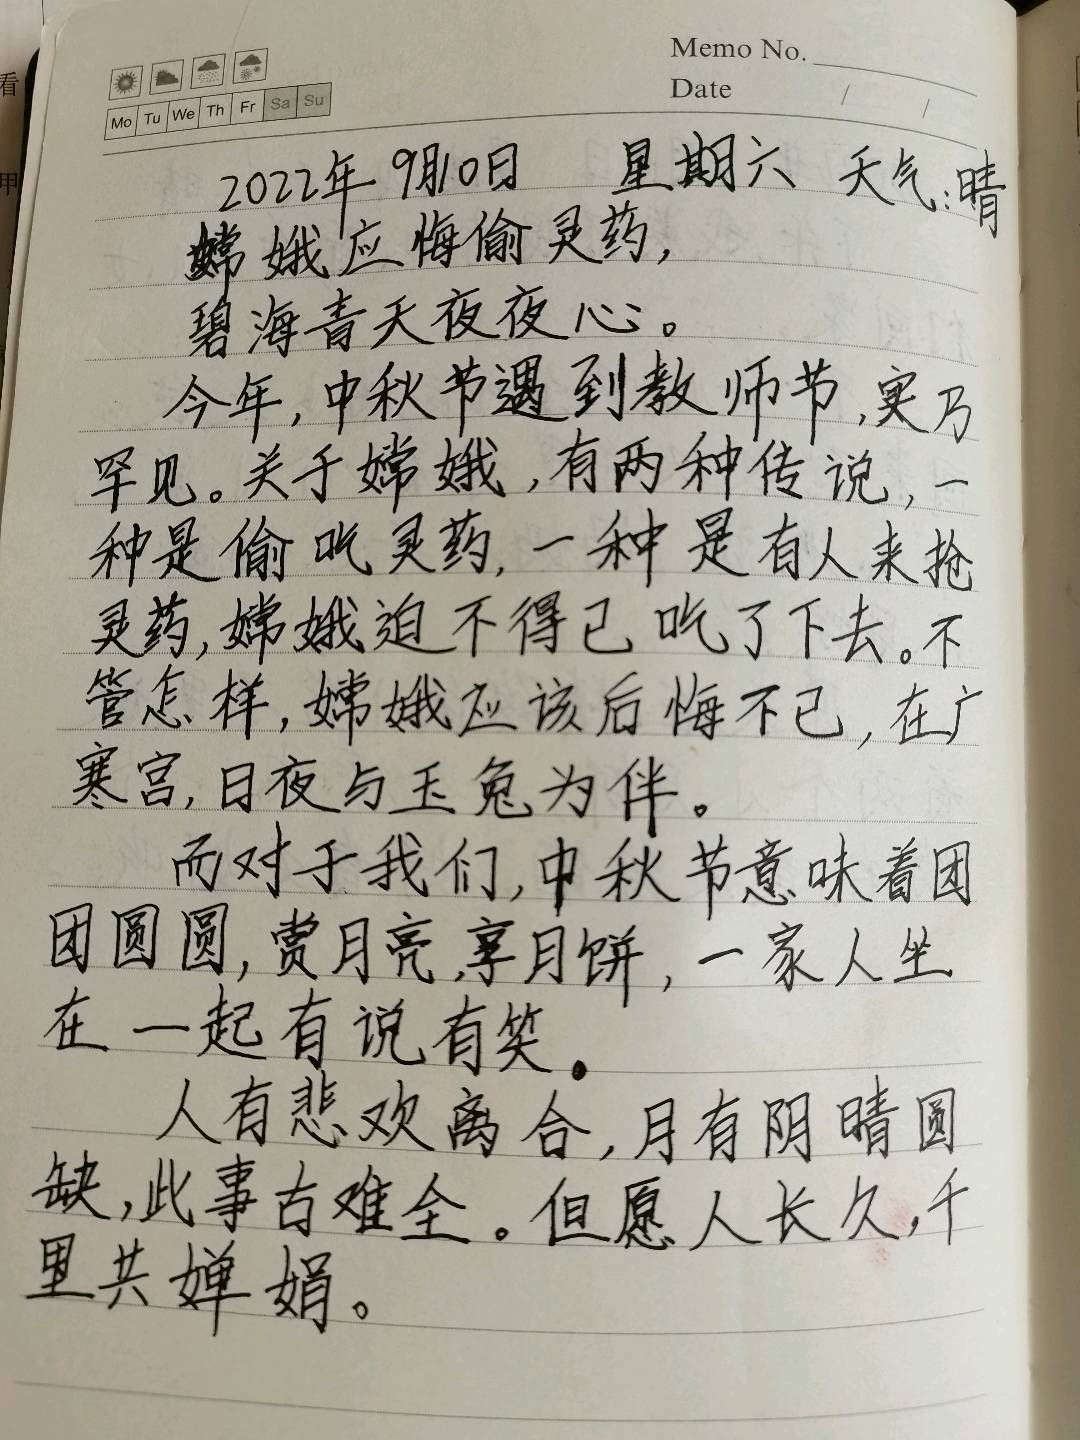 Memo No.
Date / /
Mo Tu We Th Fr Sa Su
2022年9月10日 星期六 天气:晴
嫦娥应悔偷灵药,
碧海青天夜夜心。
今年,中秋节遇到教师节,实乃
罕见。关于嫦娥,有两种传说,一
种是偷吃灵药,一种是有人来抢
灵药,嫦娥迫不得已吃了下去。不
管怎样,嫦娥应该后悔不已,在广
寒宫,日夜与玉兔为伴。
而对于我们,中秋节意味着团
团圆圆,赏月亮,享月饼,一家人坐
在一起有说有笑。
人有悲欢离合,月有阴晴圆
缺,此事古难全。但愿人长久,千
里共婵娟。
看
甲